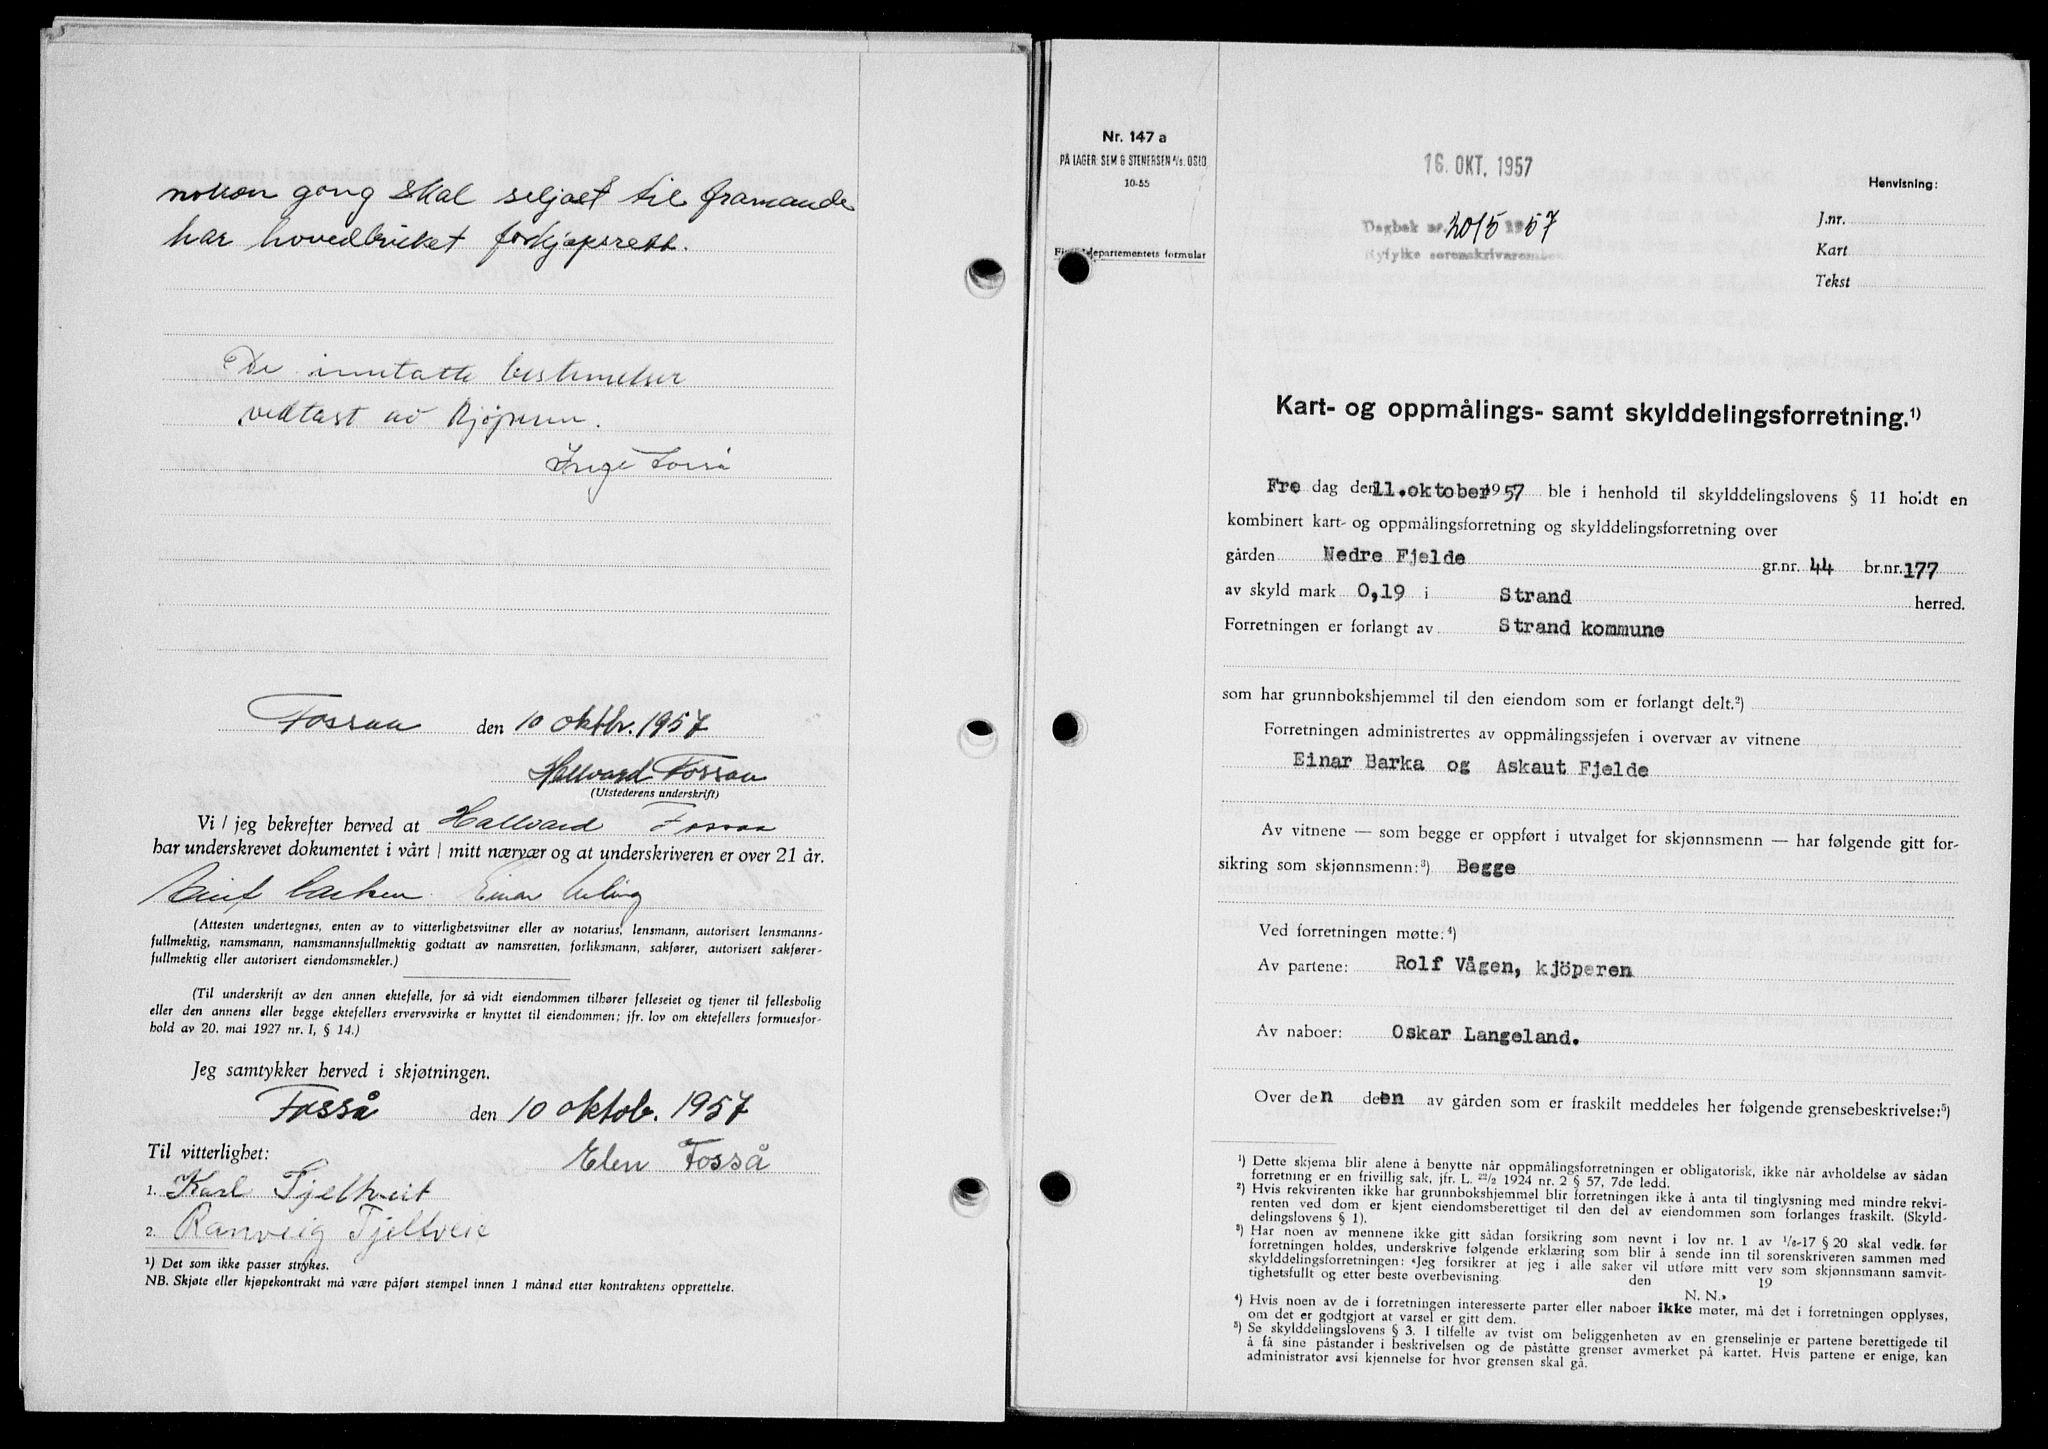 nokon gong skal seljast til framande
har hovedbruket forkjøpsrett.
De inntatte bestemelser
vedtast av kjøperen.
Inge Fosså
Fossaa den 10 oktbr. 1957
Hallvard Fossaa
(Utstederens underskrift)
Vi / jeg bekrefter herved at Hallvard Fossaa
har underskrevet dokumentet i vårt / mitt nærvær og at underskriveren er over 21 år.
Einar
(Attesten undertegnes, enten av to vitterlighetsvitner eller av notarius, lensmann, autorisert lensmanns-
fullmektig, namsmann, namsmannsfullmektig godtatt av namsretten, forliksmann, sakfører, autorisert sakfører-
fullmektig eller autorisert eiendomsmekler.)
(Til underskrift av den annen ektefelle, for så vidt eiendommen tilhører felleseiet og tjener til fellesbolig
eller den annens eller begge ektefellers ervervsvirke er knyttet til eiendommen; jfr. lov om ektefellers formuesfor-
hold av 20. mai 1927 nr. I, § 14.)
Jeg samtykker herved i skjøtningen.
Fosså den 10 oktob. 1957
Til vitterlighet: Elen Fosså
1. Karl Fjeltveit
2. Ranveig Fjeltveit
¹) Det som ikke passer strykes.
NB. Skjøte eller kjøpekontrakt må være påført stempel innen 1 måned etter kontraktens opprettelse.
Nr. 147 a
PÅ LAGER: SEM & STENERSEN A/S. OSLO
10-55
Finansdepartementets formular
16. OKT. 1957
Dagbok nr. 2015 1957
Ryfylke sorenskrivarembete
Henvisning:
J.nr.
Kart
Tekst
Kart- og oppmålings- samt skylddelingsforretning.¹)
Fre dag den 11.oktober 1957 ble i henhold til skylddelingslovens § 11 holdt en
kombinert kart- og oppmålingsforretning og skylddelingsforretning over
gården Nedre Fjelde gr.nr. 44 br.nr. 177
av skyld mark 0,19 i Strand herred.
Forretningen er forlangt av Strand kommune
som har grunnbokshjemmel til den eiendom som er forlangt delt.²)
Forretningen administrertes av oppmålingssjefen i overvær av vitnene
Einar Barka og Askaut Fjelde
Av vitnene — som begge er oppført i utvalget for skjønnsmenn — har følgende gitt for-
sikring som skjønnsmenn:³) Begge
Ved forretningen møtte:⁴)
Av partene: Rolf Vågen, kjöperen
Av naboer: Oskar Langeland.
Over den deen av gården som er fraskilt meddeles her følgende grensebeskrivelse:⁵)
¹) Dette skjema blir alene å benytte når oppmålingsforretningen er obligatorisk, ikke når avholdelse av sådan
forretning er en frivillig sak, jfr. L. ²²/₂ 1924 nr. 2 § 57, 7de ledd.
²) Hvis rekvirenten ikke har grunnbokshjemmel blir forretningen ikke å anta til tinglysning med mindre rekvi-
renten ved dom er kjent eiendomsberettiget til den del av eiendommen som forlanges fraskilt. (Skyld-
delingslovens § 1).
³) Har noen av mennene ikke gitt sådan forsikring som nevnt i lov nr. 1 av ¹/₆-17 § 20 skal vedk. før
forretningen holdes, underskrive følgende erklæring som blir å sende inn til sorenskriveren sammen med
skylddelingsforretningen: «Jeg forsikrer at jeg i alle saker vil utføre mitt verv som skjønnsmann samvit-
tighetsfullt og etter beste overbevisning. den 19
N. N.»
⁴) Hvis noen av de i forretningen interesserte parter eller naboer ikke møter, må det i forretningen opplyses,
om det er godtgjort at varsel er gitt dem.
⁵) Se skylddelingslovens § 3. I tilfelle av tvist om beliggenheten av en grenselinje er partene berettigede til
å få sine påstander i beskrivelsen og de påståtte grenser avmerket på kartet. Hvis partene er enige, kan
administrator avsi kjennelse for hvor grensen skal gå.